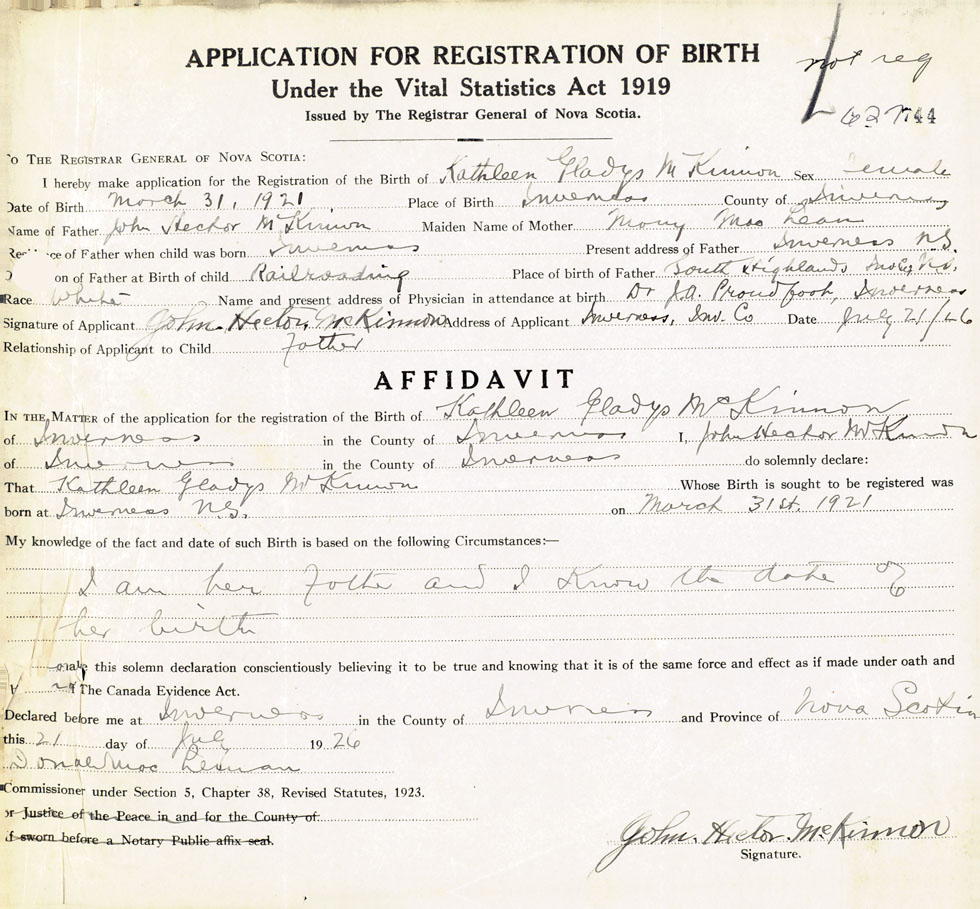 APPLICATION FOR REGISTRATION OF BIRTH
not reg
Under the Vital Statistics Act 1919
Issued by The Registrar General of Nova Scotia.
627744
To The Registrar General of Nova Scotia:
I hereby make application for the Registration of the Birth of Kathleen Gladys McKinnon Sex Female
Date of Birth March 31, 1921 Place of Birth Inverness County of Inverness
Name of Father John Hector McKinnon Maiden Name of Mother Mary MacLean
ce of Father when child was born Inverness Present address of Father Inverness N.S.
on of Father at Birth of child Railroading Place of birth of Father South Highlands Inv Co, N.S.
Race White Name and present address of Physician in attendance at birth Dr J.A. Proudfoot, Inverness
Signature of Applicant John. Hector. McKinnon Address of Applicant Inverness, Inv. Co Date July 21/26
Relationship of Applicant to Child Father
AFFIDAVIT
In the Matter of the application for the registration of the Birth of Kathleen Gladys McKinnon
of Inverness in the County of Inverness I, John Hector McKinnon
of Inverness in the County of Inverness do solemnly declare:
That Kathleen Gladys McKinnon Whose Birth is sought to be registered was
born at Inverness N.S. on March 31st. 1921
My knowledge of the fact and date of such Birth is based on the following Circumstances:—
I am her Father and I Know the date of
her birth
make this solemn declaration conscientiously believing it to be true and knowing that it is of the same force and effect as if made under oath and
of The Canada Evidence Act.
Declared before me at Inverness in the County of Inverness and Province of Nova Scotia
this 21 day of July 1926
Donald Mac Lennan
Commissioner under Section 5, Chapter 38, Revised Statutes, 1923.
or Justice of the Peace in and for the County of:
if sworn before a Notary Public affix seal.
John. Hector. McKinnon
Signature.